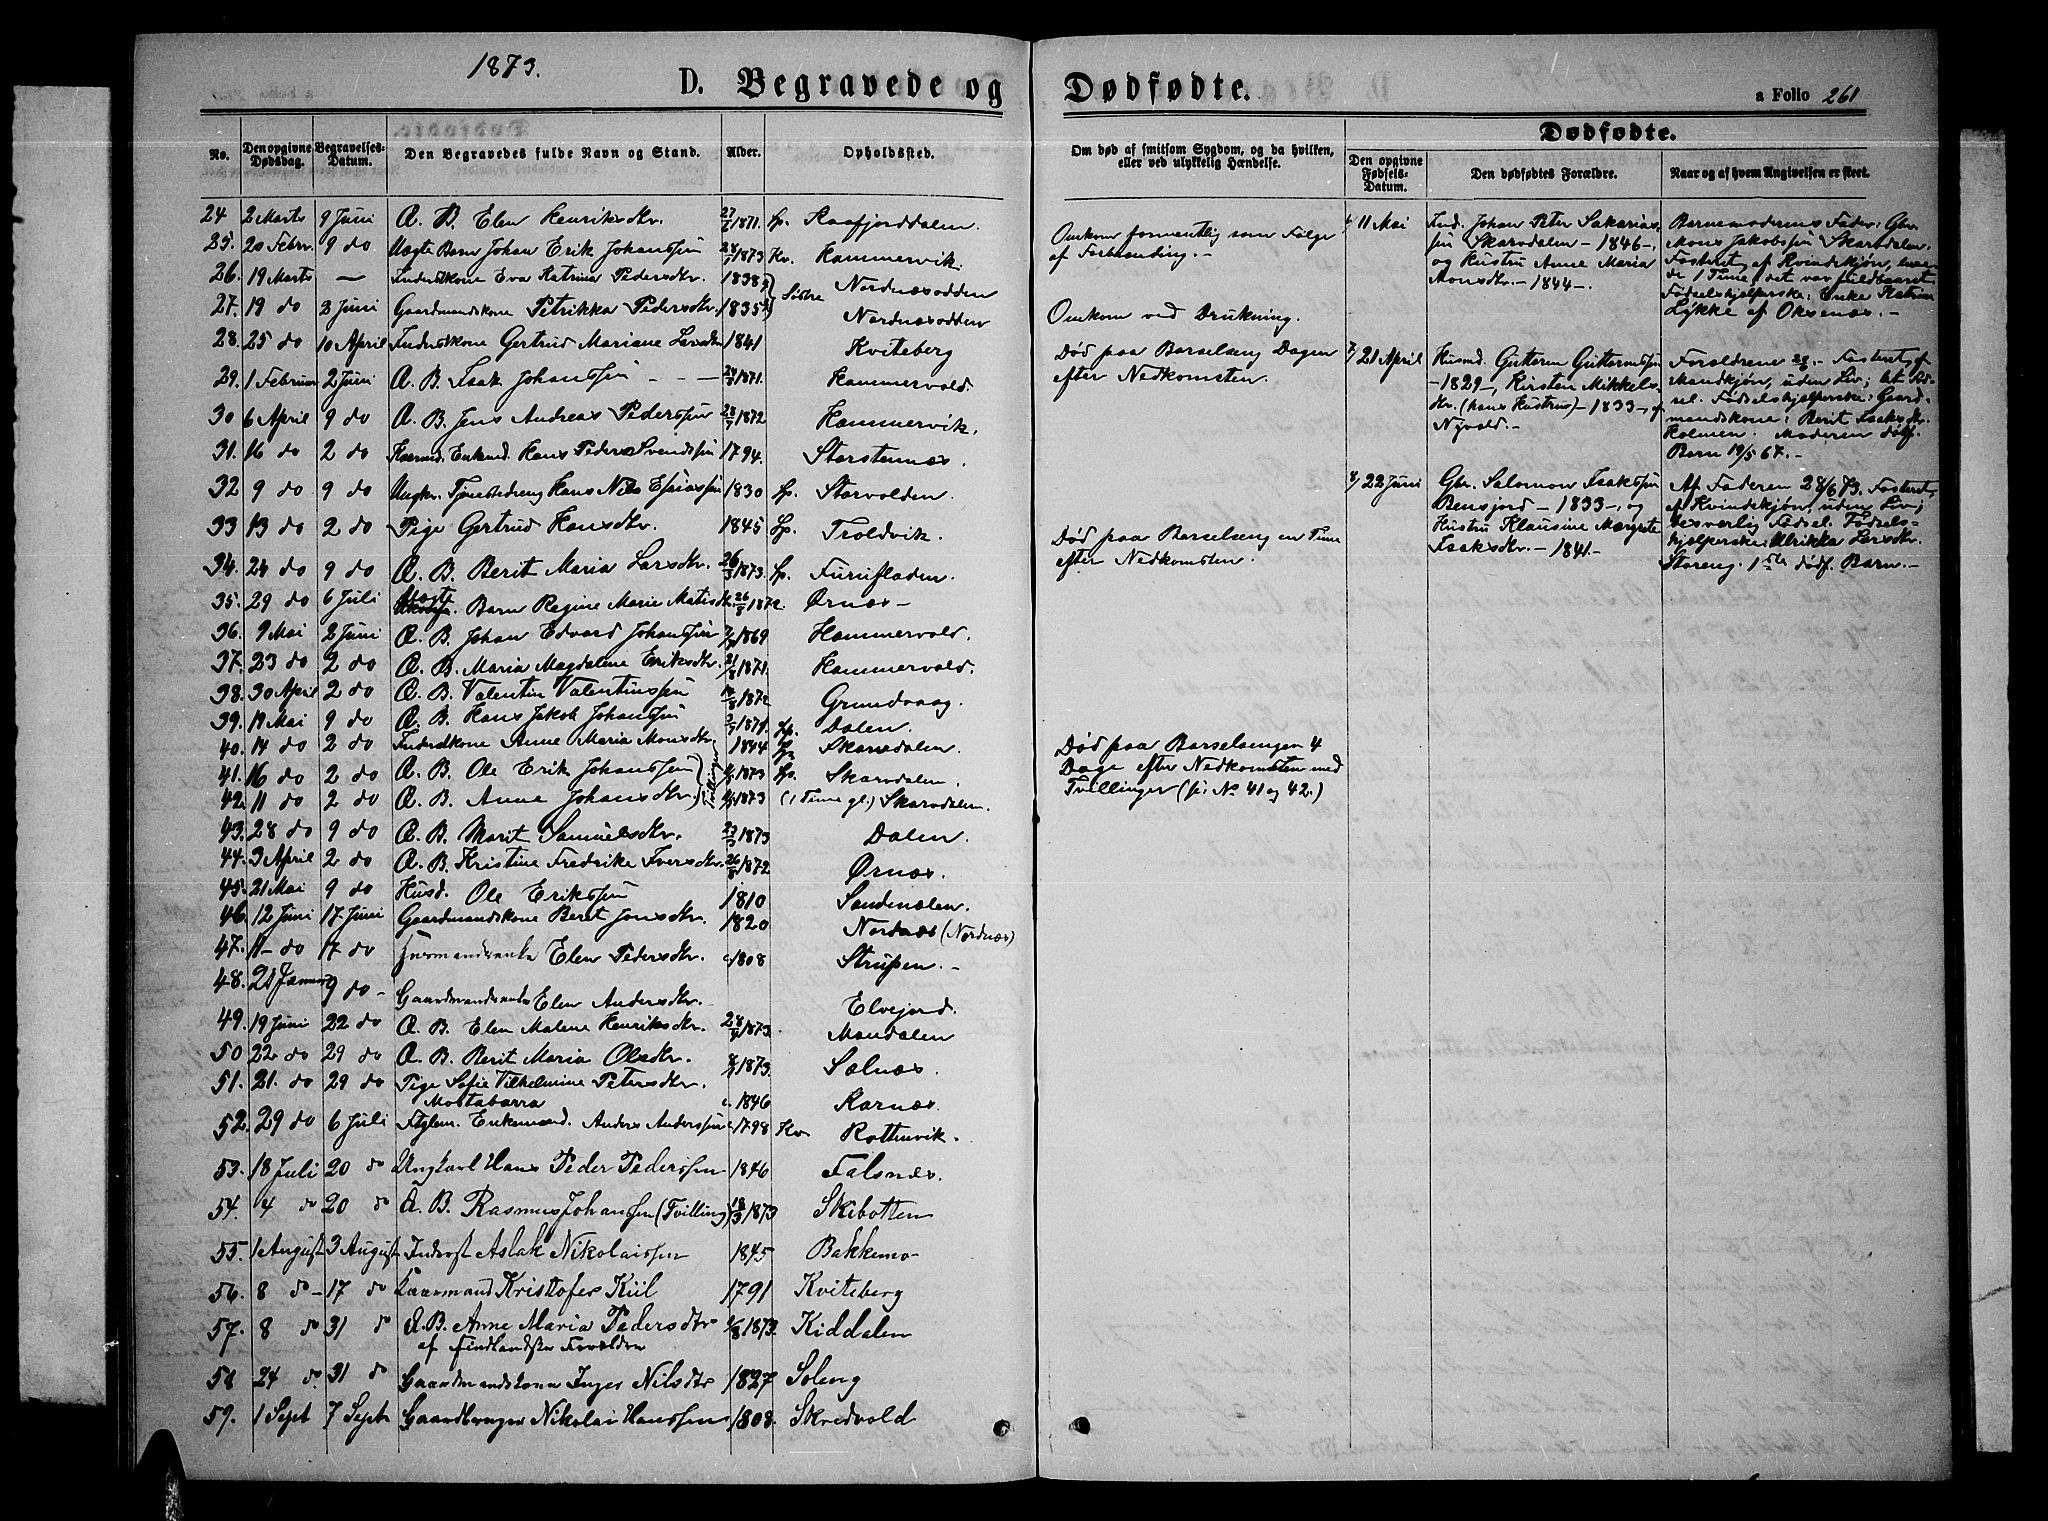 1873.
D. Begravede og Dødfødte.
a Folio 261
Dødfødte.
No. Den opgivne Dødsdag. Begravelses-Datum. Den Begravedes fulde Navn og Stand. Alder. Opholdssted. Om død af smitsom Sygdom, og da hvilken, eller ved ulykkelig Hændelse. Den opgivne Fødsels-Datum. Den dødfødtes Forældre. Naar og af hvem Angivelsen er skeet.
24 2 Marts 9 Juni Æ. B. Elen Henriksdtr. 1871. Sp. Raafjorddalen.
25. 20 Febr. 9 do Uægte Barn Johan Erik Johanssen 1873 Kv. Hammervik.
26. 19 Marts — Inderstkone Eva Katrina Pedersdtr. 1838 Søstre Nordnæsodden
27. 19 do 2 Juni Gaardmandskone Petrikka Pedersdtr. 1835 Nordnæsodden
28. 25 do 10 April Inderstkone Gertrud Mariane Larsdtr 1841 Kviteberg
29. 1 Februar 2 Juni Æ. B. Isak Johanssen - - - 1871. Hammervold.
30 6 April 9 do Æ. B. Jens Andreas Pederssen 1872 Hammervik.
31. 16 do 2 do Enkmd. Hans Peder Svendssen 1794. Storstennæs.
32 9 do 9 do Ungkr. Tjenestedreng Hans Nils Esaiassen 1830 Sp. Storvolden
33 13 do 2 do Pige Gertrud Hansdtr. 1845 Sp. Troldvik.
34. 24 do 9 do Æ. B. Berit Maria Larsdtr. 26/3 1873. Sp. Furufladen.
35. 29 do 6 Juli Uægte Barn Regine Marie Matisdtr. 26/8 1872. Ørnæs -
36. 9 Mai 2 Juni Æ. B. Johan Edvard Johanssen 1869 Hammervold.
37. 23 do 2 do Æ. B. Maria Magdalene Eriksdtr. 21/8 1871. Hammervold.
38. 30 April 2 do Æ. B. Valentin Valentinssen 1872 Grundvaag.
39. 19 Mai 9 do Æ. B. Hans Jakob Johanssen 1871. Sp. Dalen.
40. 14 do 2 do Inderstkone Anne Maria Monsdtr. 1844 Sp. Skarvdalen.
41. 16 do 2 do Æ. B. Ole Erik Johanssen 1873 Sp. Skarvdalen.
42. 11 do 2 do Æ. B. Anne Johansdtr. Tvillinger 1873 (1 Time gl.) Skarvdalen.
43. 28 do 9 do Æ. B. Marit Samuelsdtr. 1873 Dalen.
44. 3 April 2 do Æ. B. Kristine Fredrike Iversdtr. 26/8 1872 Ørnæs.
45. 21 Mai 9 do Husd. Ole Erikssen 1810 Sandenælen.
46. 12 Juni 17 Juni Gaardmandskone Berit Jonsdtr. 1820 Nordnæs (Nordnæs)
47. 11 - do 17 do Husmandsenke Elen Pedersdtr. c. 1808 Strupen. -
48. 21 Januar 9 do - Gaardmandsenke Elen Andersdtr. Elvejord.
49. 19 Juni 22 do Æ. B. Elen Malene Henriksdtr. 1873. Mandalen
50 22 do 29 do Æ. B. Berit Maria Olsdtr. 1873. Solnæs.
51. 21. do 29 do Pige Sofie Vilhelmine Petersdtr. Mostabarra c. 1846 Karnæs.
52. 29 do 6 Juli Ftglem. Enkemand. Anders Anderssen c. 1798 Kv Rottenvik.
53. 18 Juli 20 do Ungkarl Hans Peder Pederssen 1846 Falsnæs.
54. 4 do 20 do Æ. B. Rasmus Johanssen (Tvilling) 13/3 1873 Skibotten
55. 1 August 3 August Inderst Aslak Nikolaissen 1845 Bakkemo
56. 8 do - 17 do Kaarmand Kristofer Kiil 1791 Kviteberg
57. 8 do 31 do Æ.B. Anne Maria Pedersdtr af Findlandske Forældre 1873. Kiddalen
58 24 do. 31 do Gaardmandskone Inger Nilsdtr 1827 Soleng
59. 1 Sept 7 Sept Gaardbruger Nikolai Hanssen 1808. Skredvold
Omkom formentlig som Følge
af Forblanding. -
Omkom ved Drukning.
Død paa Barselseng Dagen
efter Nedkomsten.
Død paa Barselseng en Time
efter Nedkomsten.
Død paa Barselsengen 4
Dage efter Nedkomsten med
Tvillinger (se No 41 og 42.)
6/ 11 Mai
Ind. Johan Peter Sakarias-
sen Skarvdalen - 1846 -,
og Hustru Anne Maria
Monsdtr. - 1844 -
Barnemoderens Fader: Gbr
Mons Jakobssen Skarvdalen.
Fosteret af Kvindekjøn, leve-
de 1 Time, det var fuldbaaret.
Fødselshjelperske: Enke Katrine
Lykke af Oksenæs. -
7/ 21 April
Husmd. Guttorm Guttormssen
- 1829 -, Kirsten Mikkels-
dtr. (hans Hustru) - 1833 -, af
Nyvold. -
Forældrene - Fosteret af
Mandkjøn, uden Liv; let Fød-
sel. Fødselshjelperske: Gaard-
mandskone: Berit Isaksdtr.
Holmen. Moderen dødf.
Barn 19/5 67. -
8/ 22 Juni
Gbr. Salomon Isakssen
Bensjord - 1833 -, og
Hustru Klausine Margrete
Isaksdtr. - 1841 -
Af Faderen 28/6 73. Fosteret
af Kvindekjøn, uden Liv;
besværlig Fødsel. Fødsels-
hjelperske: Ulrikka Larsdtr.
Storeng. 1ste dødf. Barn. -